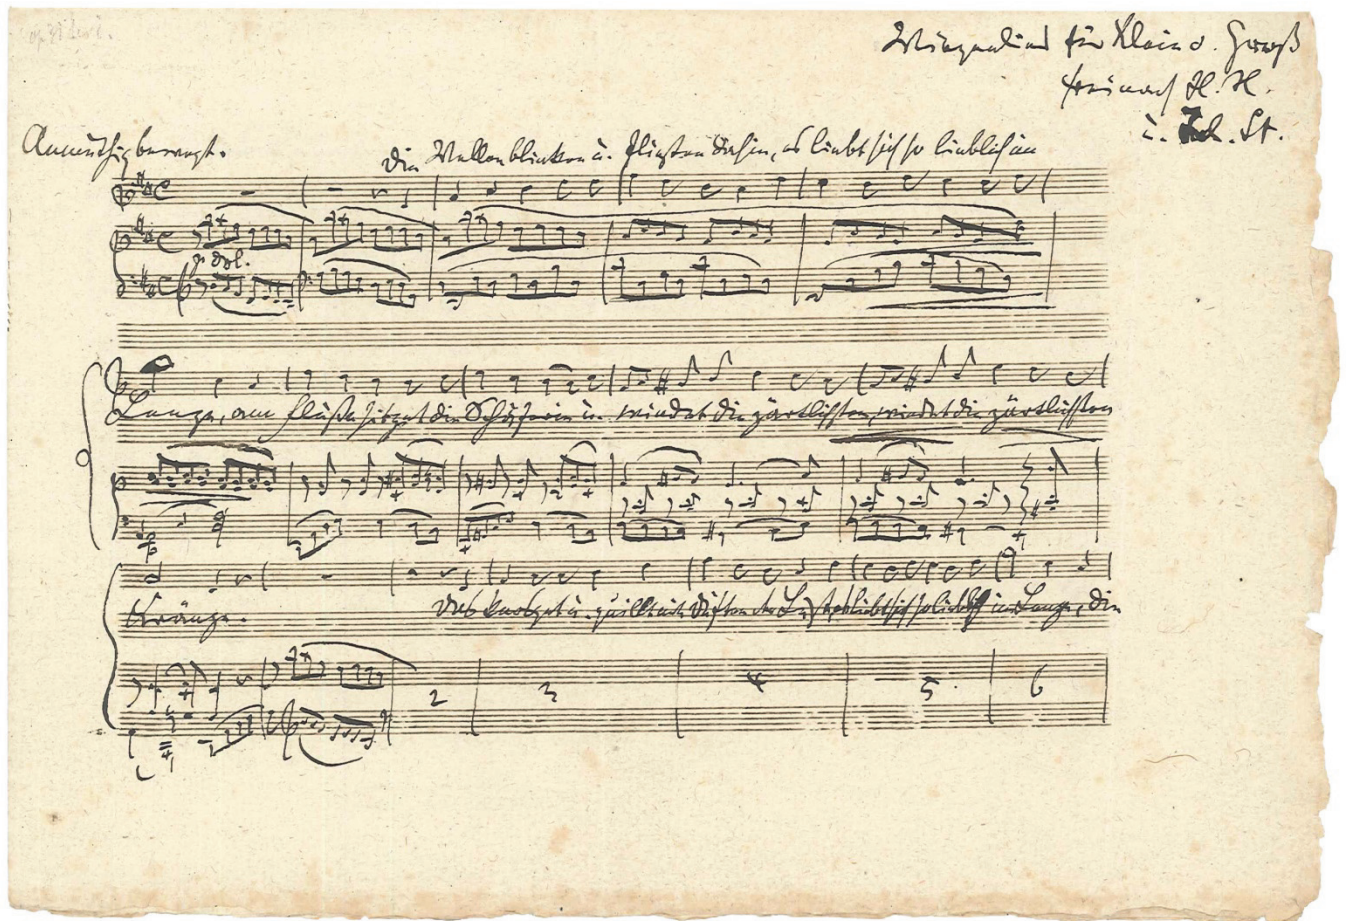 op. 71 No 1.
Wiegenlied für Klein u. Groß
frei nach H. H.
u. St.
Anmuthig bewegt.
Die Wellen blinken u. fließen dahin, es liebt sich so lieblich im
p dol.
Lenze, am Fluße sitzet die Schäferin u. windet die zärtlichsten, windet die zärtlichsten
Kränze. Das knospet u. quillt mit duftender Lust, es liebt sich so lieblich im Lenze, die
2 3 4 5 6